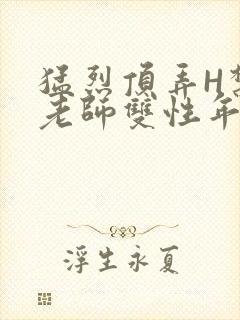 猛烈頂弄H
老師雙性年
浮生永夏